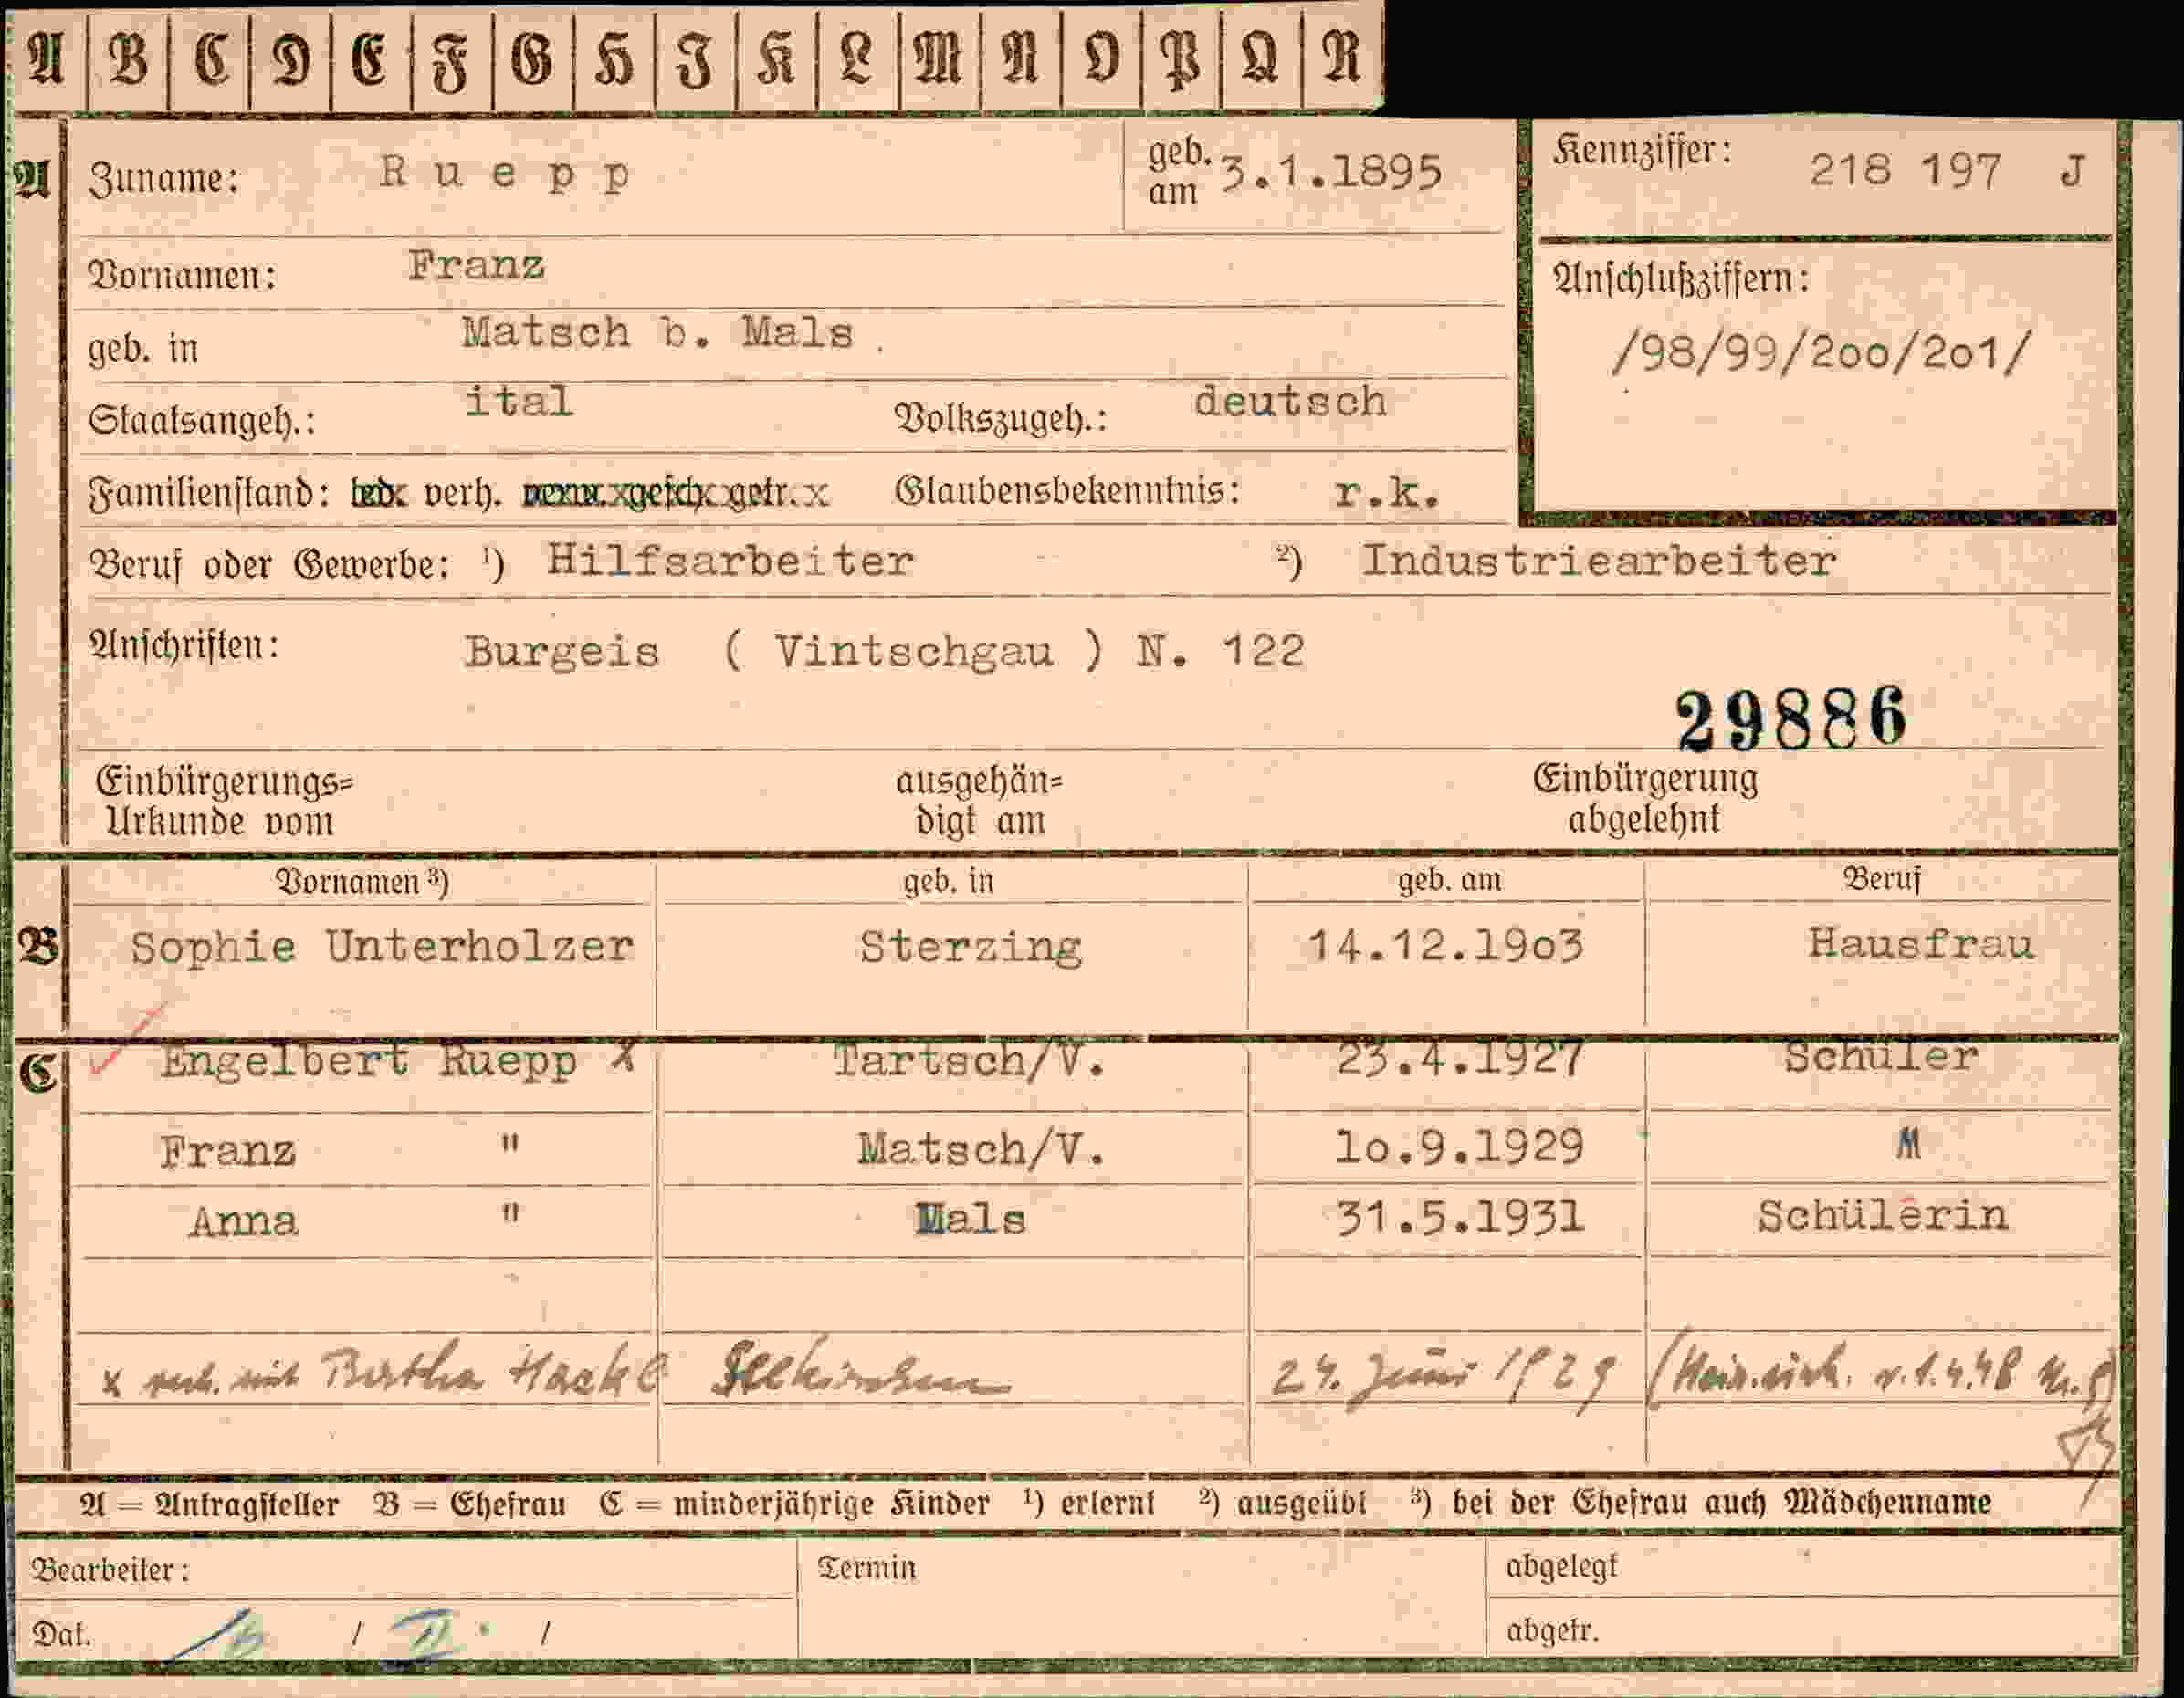 A B C D E F G H I K L M N O P Q R
A Zuname: Ruepp geb. am 3.1.1895 Kennziffer: 218 197 J
Vornamen: Franz
Anschlußziffern:
geb. in Matsch b. Mals
/98/99/2oo/2o1/
Staatsangeh.: ital Volkszugeh.: deutsch
Familienstand: led. verh. verw. gesch. getr. Glaubensbekenntnis: r.k.
Beruf oder Gewerbe: ¹) Hilfsarbeiter ²) Industriearbeiter
Anschriften: Burgeis ( Vintschgau ) N. 122
29886
Einbürgerungs= ausgehän= Einbürgerung
Urkunde vom digt am abgelehnt
Vornamen ³) geb. in geb. am Beruf
B Sophie Unterholzer Sterzing 14.12.19o3 Hausfrau
C Engelbert Ruepp x Tartsch/V. 23.4.1927 Schüler
Franz " Matsch/V. 1o.9.1929 "
Anna " Mals 31.5.1931 Schülerin
x verh. mit Bertha Hackl Seekirchen 24. Juni 1929 v. 1.4.48
A = Antragsteller B = Ehefrau C = minderjährige Kinder ¹) erlernt ²) ausgeübt ³) bei der Ehefrau auch Mädchenname
Bearbeiter: Termin abgelegt
Dat. / II. / abgetr.